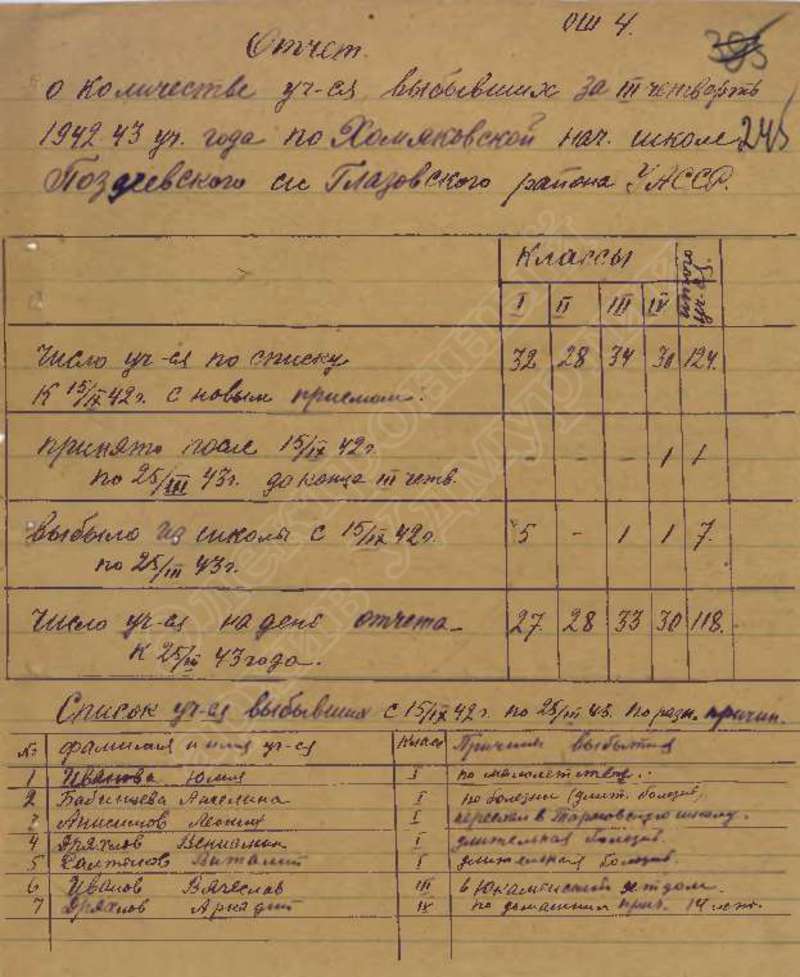 ОШ 4.
395
Отчет.
о количестве уч-ся выбывших за III четверть
1942-43 уч. года по Хомяковской нач. школе
245
Поздеевского с/с Глазовского района УАССР.
Классы
итого уч-ся
I II III IV
Число уч-ся по списку 32 28 34 30 124.
к 15/IX 42 г. с новым приемом:
принято после 15/IX 42 г. - - - 1 1
по 25/III 43 г. до конца III четв.
Выбыло из школы с 15/IX 42 г. 5 - 1 1 7.
по 25/III 43 г.
Число уч-ся на день отчета 27. 28 33 30 118.
к 25/III 43 года.
Список уч-ся выбывших с 15/IX 42 г. по 25/III 43. по разн. причин.
№ фамилия и имя уч-ся Класс Причина выбытия
1 Иванова Юлия I по малолетству.
2 Бабинцева Ангелина I по болезни (длит. болезнь).
3 Анисимов Леонид I переехал в школу.
4 Дряхлов Вениамин I длительная болезнь.
5 Салтыков Виталий I длительная болезнь.
6 Иванов Вячеслав III в Юкаменский детдом.
7 Дряхлов Аркадий IV по домашним прич. 14 лет.